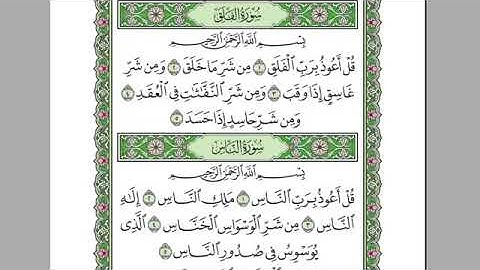 سُورَةُ الفَلَقِ
بِسْمِ ٱللَّهِ ٱلرَّحْمَٰنِ ٱلرَّحِيمِ
قُلْ أَعُوذُ بِرَبِّ ٱلْفَلَقِ ١ مِن شَرِّ مَا خَلَقَ ٢ وَمِن شَرِّ
غَاسِقٍ إِذَا وَقَبَ ٣ وَمِن شَرِّ ٱلنَّفَّٰثَٰتِ فِي ٱلْعُقَدِ ٤
وَمِن شَرِّ حَاسِدٍ إِذَا حَسَدَ ٥
سُورَةُ النَّاسِ
بِسْمِ ٱللَّهِ ٱلرَّحْمَٰنِ ٱلرَّحِيمِ
قُلْ أَعُوذُ بِرَبِّ ٱلنَّاسِ ١ مَلِكِ ٱلنَّاسِ ٢ إِلَٰهِ
ٱلنَّاسِ ٣ مِن شَرِّ ٱلْوَسْوَاسِ ٱلْخَنَّاسِ ٤ ٱلَّذِي
يُوَسْوِسُ فِي صُدُورِ ٱلنَّاسِ ٥